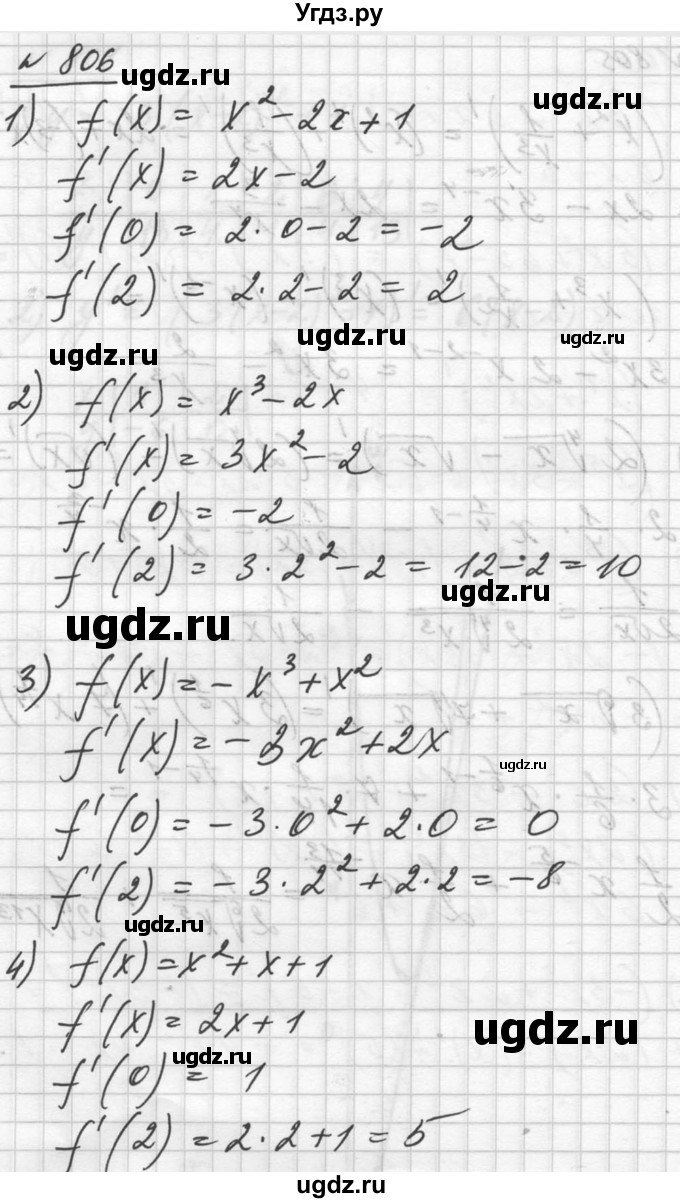 Угдз.ру
№ 806
ugdz.ru
ugdz.ru
1) f(x) = x² - 2x + 1
f'(x) = 2x - 2
f'(0) = 2·0 - 2 = -2
f'(2) = 2·2 - 2 = 2
ugdz.ru
ugdz.ru
ugdz.ru
2) f(x) = x³ - 2x
f'(x) = 3x² - 2
f'(0) = -2
f'(2) = 3·2² - 2 = 12 - 2 = 10
ugdz.ru
ugdz.ru
3) f(x) = -x³ + x²
f'(x) = -3x² + 2x
ugdz.ru
f'(0) = -3·0² + 2·0 = 0
f'(2) = -3·2² + 2·2 = -8
ugdz.ru
4) f(x) = x² + x + 1
f'(x) = 2x + 1
ugdz.ru
ugdz.ru
f'(0) = 1
f'(2) = 2·2 + 1 = 5
ugdz.ru